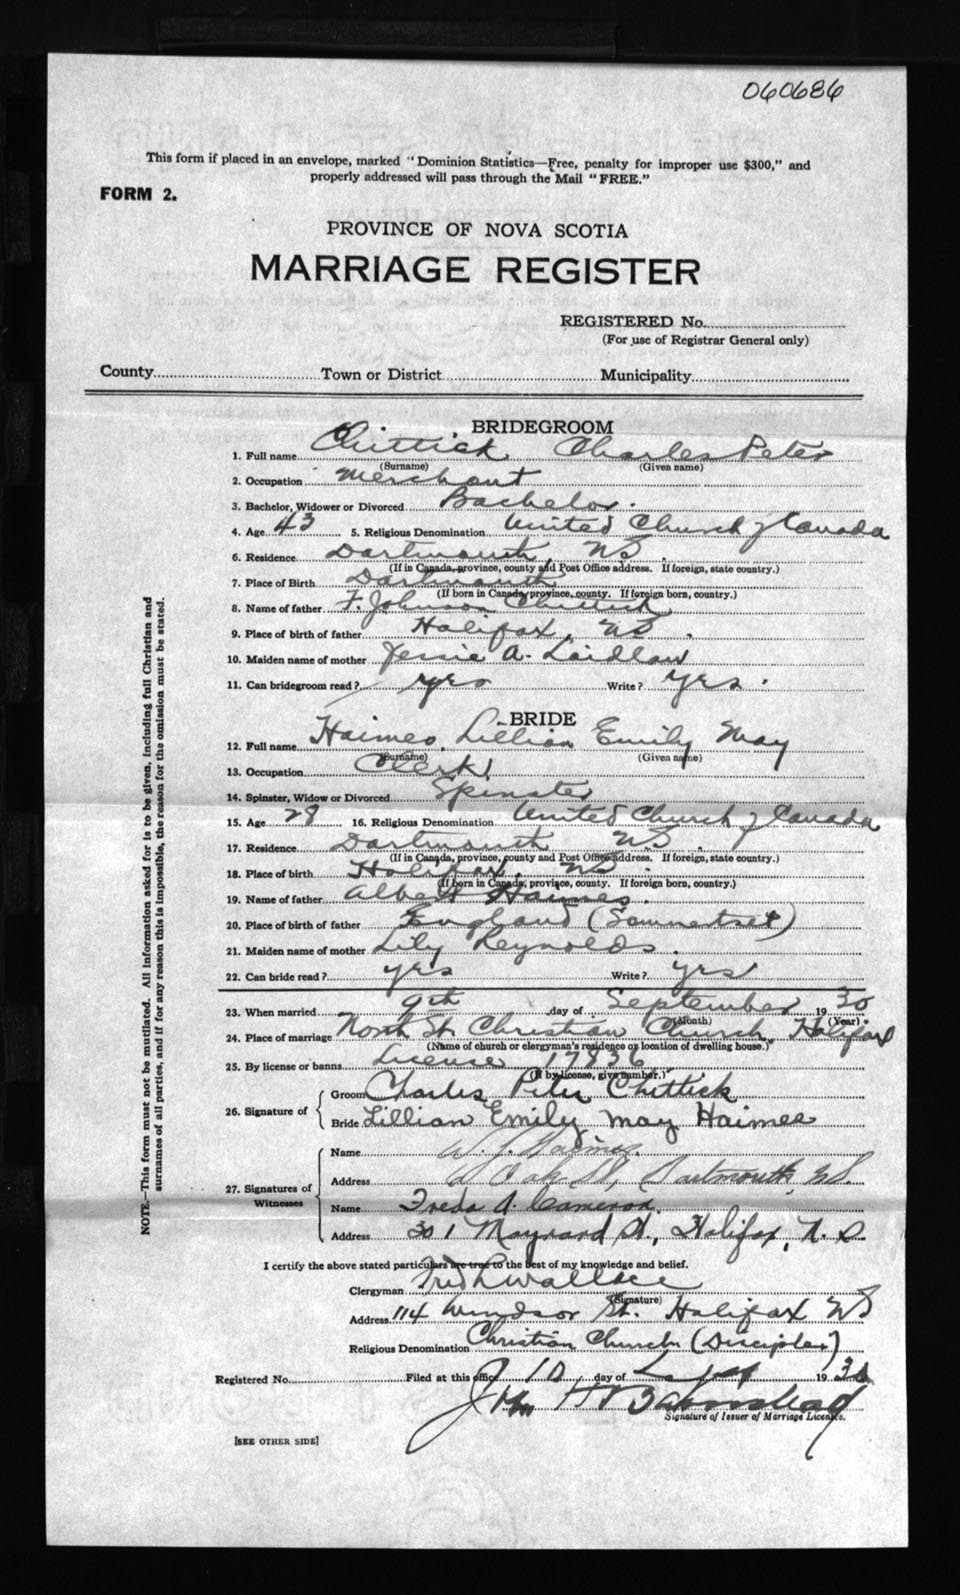 060686
This form if placed in an envelope, marked "Dominion Statistics—Free, penalty for improper use $300," and
properly addressed will pass through the Mail "FREE."
FORM 2.
PROVINCE OF NOVA SCOTIA
MARRIAGE REGISTER
REGISTERED No.
(For use of Registrar General only)
County Town or District Municipality
BRIDEGROOM
1. Full name Chittick Charles Peter
(Surname) (Given name)
2. Occupation Merchant
3. Bachelor, Widower or Divorced Bachelor.
4. Age 43 5. Religious Denomination United Church of Canada
6. Residence Dartmouth, NS.
(If in Canada, province, county and Post Office address. If foreign, state country.)
7. Place of Birth Dartmouth
(If born in Canada, province, county. If foreign born, country.)
8. Name of father F. Johnson Chittick
9. Place of birth of father Halifax, NS.
10. Maiden name of mother Jessie A. Laidlaw
11. Can bridegroom read? yes Write? yes.
BRIDE
12. Full name Haimes, Lillian Emily May
(Surname) (Given name)
13. Occupation Clerk
14. Spinster, Widow or Divorced Spinster
15. Age 28 16. Religious Denomination United Church of Canada
17. Residence Dartmouth NS.
(If in Canada, province, county and Post Office address. If foreign, state country.)
18. Place of birth Halifax, NS.
(If born in Canada, province, county. If foreign born, country.)
19. Name of father Albert Haimes.
20. Place of birth of father England (Sommerset)
21. Maiden name of mother Lily Reynolds.
22. Can bride read? yes Write? yes
23. When married 9th day of September 1930
(Month) (Year)
24. Place of marriage North St. Christian Church, Halifax
(Name of church or clergyman's residence or location of dwelling house.)
25. By license or banns License 17836
(If by license, give number.)
26. Signature of Groom Charles Peter Chittick
Bride Lillian Emily May Haimes
27. Signatures of Witnesses
Name
Address Oak St, Dartmouth, N.S.
Name Freda A. Cameron.
Address 301 Maynard St., Halifax, N.S.
I certify the above stated particulars are true to the best of my knowledge and belief.
Clergyman Fred L Wallace
(Signature)
Address 114 Windsor St. Halifax NS
Religious Denomination Christian Church (Disciples)
Registered No. Filed at this office 10 day of 1930
Signature of Issuer of Marriage Licenses.
[SEE OTHER SIDE]
NOTE.—This form must not be mutilated. All information asked for is to be given, including full Christian and
surnames of all parties, and if for any reason this is impossible, the reason for the omission must be stated.